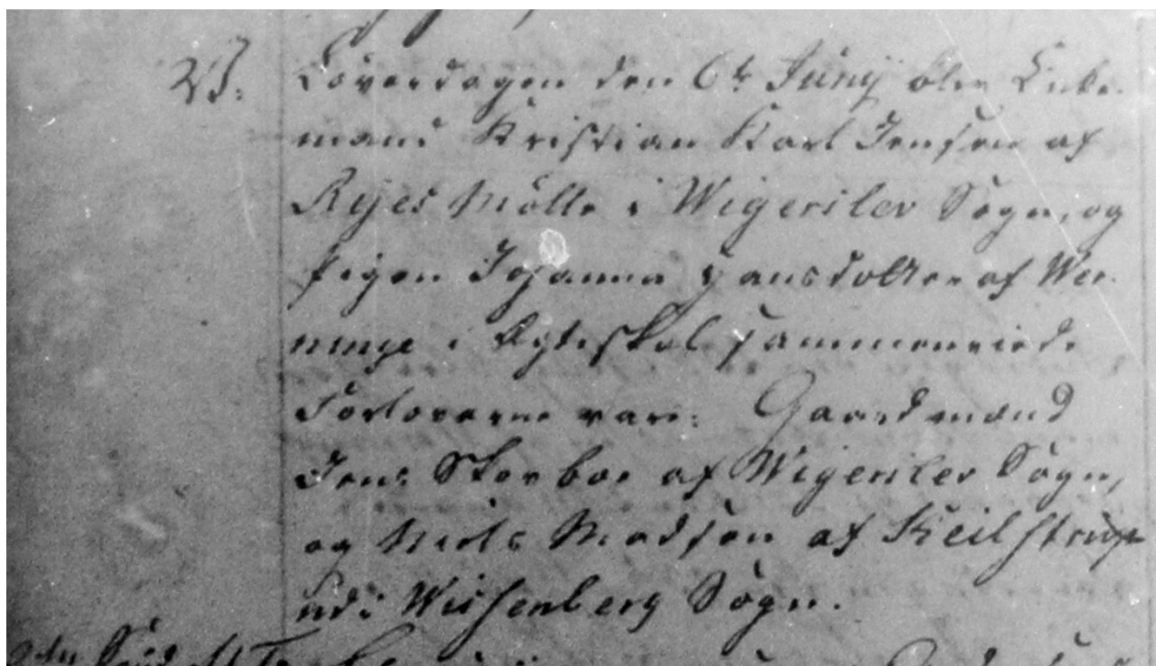 V:
Löverdagen den 6te Juny blev Enke-
mand Kristian Karl Jensen af
Ryes Mölle i Wigerslev Sogn, og
Pigen Johanna Hansdotter af Wer-
ninge i Ægteskab sammenviede
Forloverne vare: Gaardmænd
Jens Skovboe af Wigerslev Sogn,
og Niels Madsen af Keilstrup
udi Wissenberg Sogn.